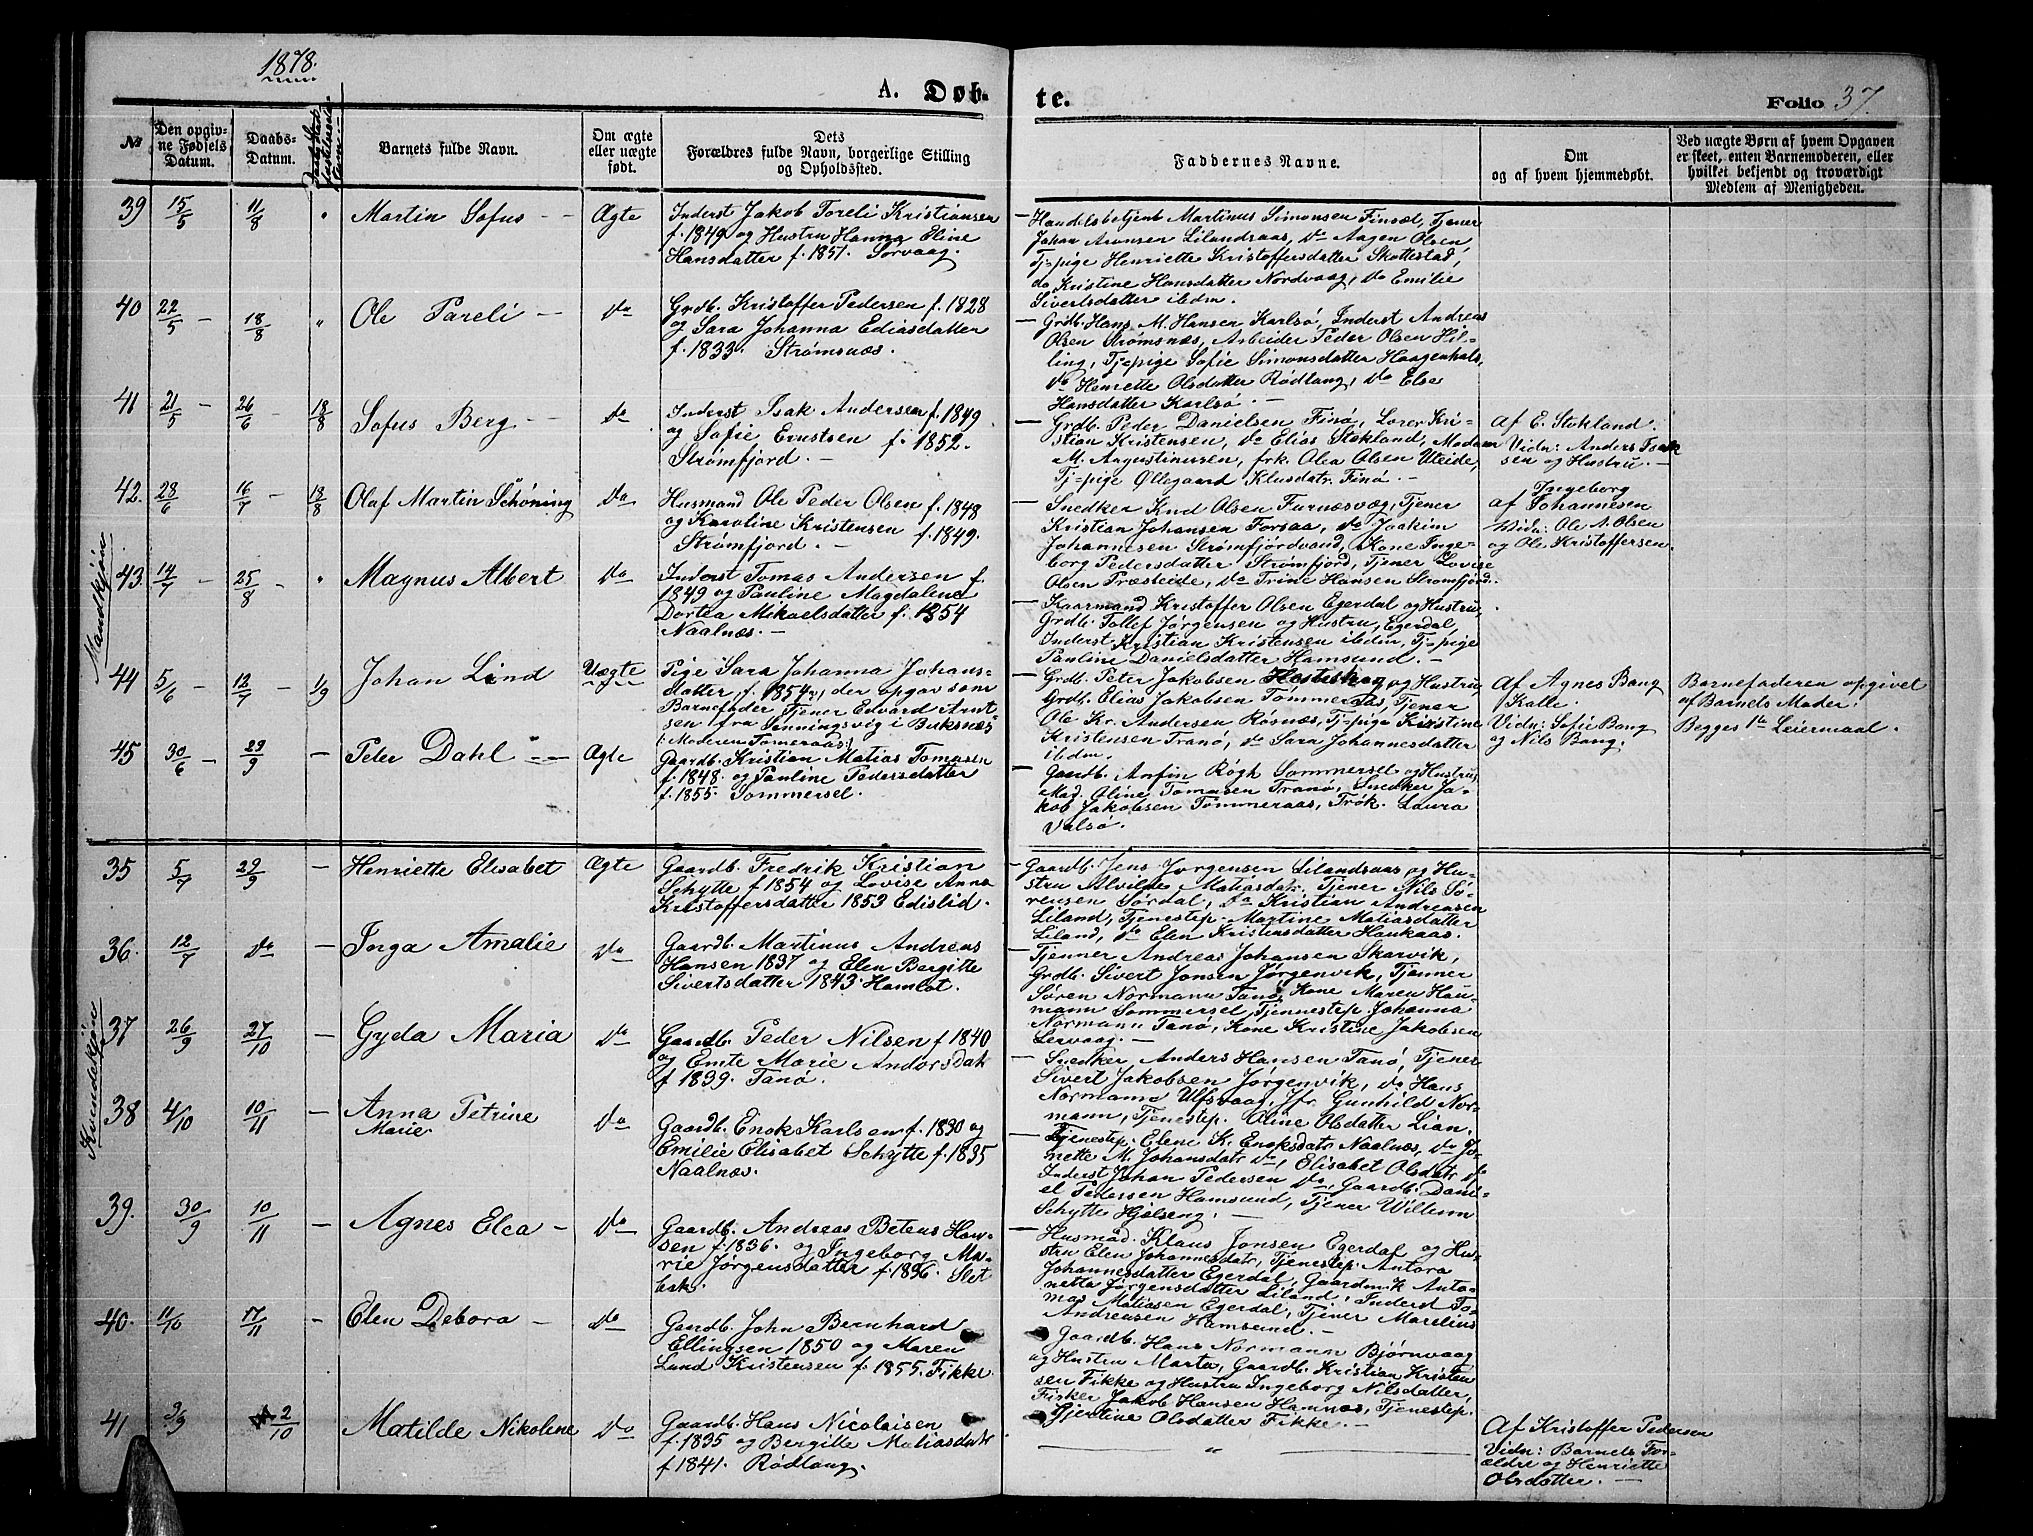 1878.
A. Døb-
te.
Folio 37.
№
Den opgiv-
ne Fødsels
Datum.
Daabs-
Datum.
Barnets fulde Navn.
Om ægte
eller uægte
født.
Dets
Forældres fulde Navn, borgerlige Stilling
og Opholdssted.
Faddernes Navne.
Om
og af hvem hjemmedøbt.
Ved uægte Børn af hvem Opgaven
er skeet, enten Barnemoderen, eller
hvilket bekjendt og troværdigt
Medlem af Menigheden.
Mandkjön
39 15/5 11/8 " Martin Sofus - - Ægte
Inderst Jakob Toreli Kristiansen
f. 1849 og Hustru Hanna Eline
Hansdatter f. 1851. Sørvaag.
- Handelsbetjent Martinus Simonsen Finsæl, Tjener
Johan Aronsen Lilandsaas, do Aagen Olsen,
Tj-pige Henriette Kristoffersdatter Skottestad,
do Kristine Hansdatter Nordvaag, do Emilie
Sivertsdatter ibdm.
40 22/5 - 18/8 " Ole Pareli - do
Grdb. Kristoffer Pedersen f. 1828
og Sara Johanna Ediasdatter
f. 1833. Strømsnæs.
- Grdb. Hans M. Hansen Karlsö, Inderst Andreas
Olsen Strømsnæs, Arbeider Peder Olsen Hil-
ling, Tj-pige Sofie Simonsdatter Haagenhals,
do Henriette Olsdatter Rødtang, do Else
Hansdatter Karlsö. -
41 21/5 - 26/6 - 18/8 Sofus Berg - do
Inderst Isak Andersen f. 1849
og Sofie Ernstsen f. 1852.
Strømfjord. -
- Grdb. Peder Danielsen Finø, Lærer Kri-
stian Kristensen, do Elias Stokland, Madam
M. Augustinussen, frk. Olea Olsen Uteide,
Tj-pige Ollegaard Klusdatr. Finø. -
af E. Stokland.
Vidn: Anders Isak
sen og Hustru. -
42. 28/6 16/7 - 18/8 Olaf Martin Schöning do
Husmand Ole Peder Olsen f. 1848
og Karoline Kristensen f. 1849.
Strømfjord. -
- Snedker Knud Olsen Furnæsvæg, Tjener
Kristian Johansen Forsaa, do Joakim
Johannesen Strømfjordvand, Kone Inge-
borg Pedersdatter Strømfjord, Tjener Lovise
Olsen Præsteide, do Trine Hansen Strømfjord.
Ingeborg
af Johannesen
Vidn: Ole A. Olsen
og Ole Kristoffersen.
43. 14/7 - 25/8 - " Magnus Albert do
Inderst Tomas Andersen f.
1849 og Pauline Magdalene
Dortea Mikaelsdatter f. 1854
Naalnæs. -
- Kaarmand Kristoffer Olsen Egerdal og Hustru,
Grdb. Tollef Jørgensen og Hustru, Egerdal,
Inderst Kristian Kristensen ibdm, Tj-pige
Pauline Danielsdatter Hamsund. -
44 5/6 - 12/7 - 1/9 Johan Lind Uægte
Pige Sara Johanna Johans-
datter, f. 1854, der opgav som
Barnefader Tjener Edvard Arnt
sen fra Senningsvig i Buksnæs
(: Moderen Tømeraas :)
- Grdb. Peter Jakobsen og Hustru
Grdb. Elias Jakobsen Tømmeraas, Tjener
Ole Kr. Andersen Røsnæs, Tj-pige Kristine
Kristensen Tranø, do Sara Johannesdatter
ibdm.
Af Agnes Bang
Kalle.
Vidn: Sofie Bang
og Nils Bang.
Barnefaderen opgivet
af Barnets Moder.
Begges 1te Leiermaal.
45 30/6 - 29/9 - Peter Dahl - - Ægte
Gaardb. Kristian Matias Tomasen
f. 1848 og Pauline Pedersdatter
f. 1855. Sommersel.
- Gaardb. Anfin Røgh Sommersel og Hustru,
Mad. Oline Tomasen Tranø, Snedker Ja-
kob Jakobsen Tømmeraas, Frøk. Laura
Valsø.
Kvindekjön
35 5/7 29/9 - Henriette Elisabet Ægte
Gaardb. Fredrik Kristian
Schytte f 1854 og Lovise Anna
Kristoffersdatter 1853 Edislid.
- Gaardb. Jens Jørgensen Lilandsaas og Hu-
stru Alvilde Matiasdatr. Tjener Nils Sø-
rensen Sørdal, do Kristian Andreasen
Liland, Tjenestep. Martine Matiasdatter
Liland, do Elen Kristensdatter Haukaas.
36. 12/7 do - Inga Amalie do
Gaardb. Martinus Andreas
Hansen 1837 og Elen Bergitte
Sivertsdatter 1843 Hamlot.
- Tjenner Andreas Johansen Skarvik,
Grdb. Sivert Jonsen Jørgenvik, Tjenner
Søren Normann Tanø, Kone Maren Hau-
mann Sommersel, Tjenestep Johanna
Normann Tanø, Kone Kristine Jakobsen
Leirvaag. -
37 26/9 27/10 - Gyda Maria do
Gaardb. Peder Nilsen f 1840
og Emte Marie Andorsdatr
f 1839. Tanø.
- Snedker Anders Hansen Tanø, Tjener
Sivert Jakobsen Jørgenvik, do Hans
Normann Ulfsvaag, Jfr. Gunhild Nor-
mann, Tjenestep. Oline Olsdatter Lian.
38 4/10 10/11 - Anna Petrine
Marie. do
Gaardb. Enok Karlsen f. 1830 og
Emilie Elisabet Schytte f. 1835
Naalnæs.
- Tjenestep. Elene K. Enoksdatr Naalnæs, do Jo-
nette M. Johansdatr do, Elisabet Olsdatr do
Inderst Johan Pedersen do, Gaardb. Dani-
el Pedersen Hamsund, Tjener Willum
Schytte Hjelseng. -
39. 30/9 10/11 - Agnes Elea - do
Gaardb. Andreas Beteus Han-
sen f. 1836. og Ingeborg Ma-
rie Jørgensdatter f. 1836. Slet
bak.
- Husmad. Klaus Jonsen Egerdal og Hu-
stru Elen Johannesdatr, Tjenestep. Antora
Johannesdatter Egerdal, Gaardm. K. Anto-
netta Jørgensdatter Liland, Inderst To-
mas Matiasen Egerdal, Tjener Marelius
Andreasen Hamsund. -
40. 11/10 17/11 - Elen Debora - do
Gaardb. John Bernhard
Ellingsen 1850 og Maren
Lund Kristensen f. 1855. Fikke.
Gaardb. Hans Normann Bjørnvaag
og Hustru Marta, Gaardb. Kristian Kristen
sen Fikke og Hustru Ingeborg Nilsdatter,
Fisker Jakob Hansen Hamnæs, Tjenestep.
Gjertine Olsdatter Fikke. -
41 9/9 2/10 Matilde Nikoline do
Gaardb. Hans Nicolaisen
f. 1835 og Bergitte Matiasdatr
f 1841. Rødtang.
"
Af Kristoffer Pedersen
Vidn: Barnets For-
ældre og Henriette
Olsdatter. -